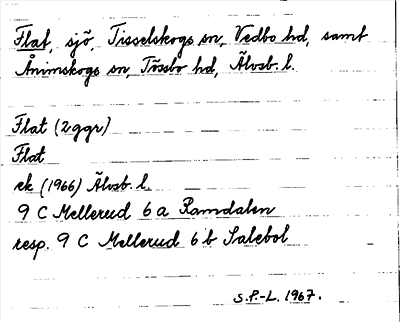 Flat, sjö, Tisselskogs sn, Vedbo hd, samt
Ånimskogs sn, Tössbo hd, Älvsb. l.
Flat (2ggr)
Flat
ek (1966) Älvsb. l.
9 C Mellerud 6 a Ramdalen
resp. 9 C Mellerud 6 b Salebol
S.P.-L. 1967.